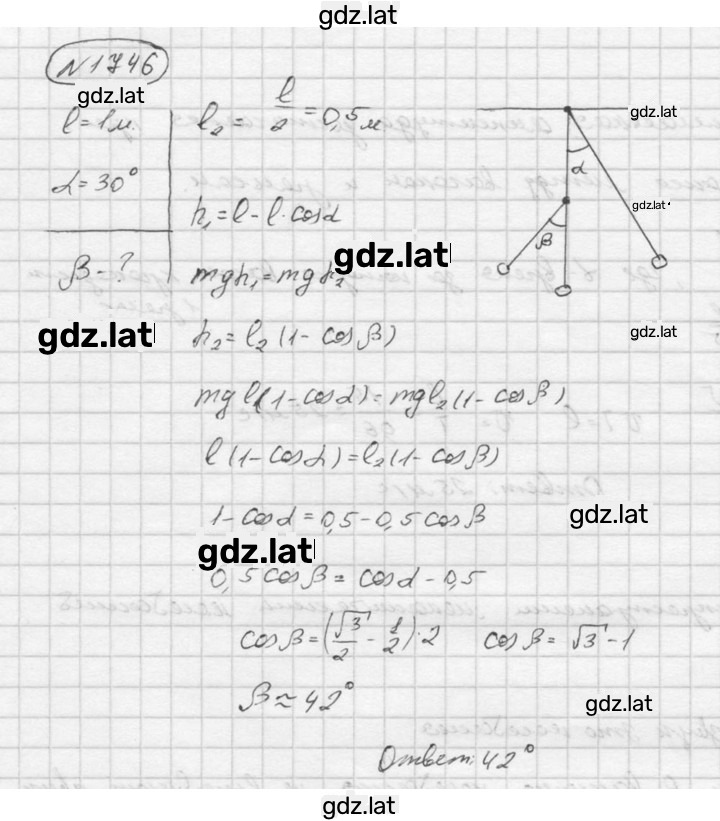 gdz.lat
№1746
gdz.lat
l = 1м
α = 30°
β - ?
gdz.lat
l₂ = l/2 = 0,5 м
h₁ = l - l·cosα
gdz.lat
mgh₁ = mgh₂
h₂ = l₂ (1 - cosβ)
mgl(1 - cosα) = mgl₂(1 - cosβ)
l(1 - cosα) = l₂(1 - cosβ)
1 - cosα = 0,5 - 0,5 cosβ
gdz.lat
gdz.lat
0,5 cosβ = cosα - 0,5
cosβ = (√3/2 - 1/2)·2 cosβ = √3 - 1
β ≈ 42°
gdz.lat
Ответ: 42°
gdz.lat
α
β
gdz.lat
gdz.lat
gdz.lat